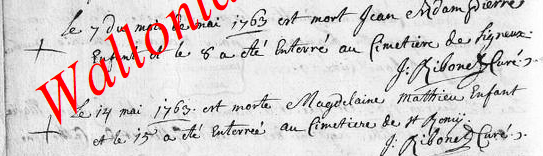 Le 7 du mois de mai 1763 est mort Jean Adam Pierre
Enfant et le 8 a été Enterré au Cimetiere de Ligneux.
J. Ribonet Curé.
Le 14 mai 1763. est morte Magdelaine Mathieu Enfant
et le 15 a été Enterreé au Cimetiere de st Remy.
J. Ribonet Curé.
Wallonia